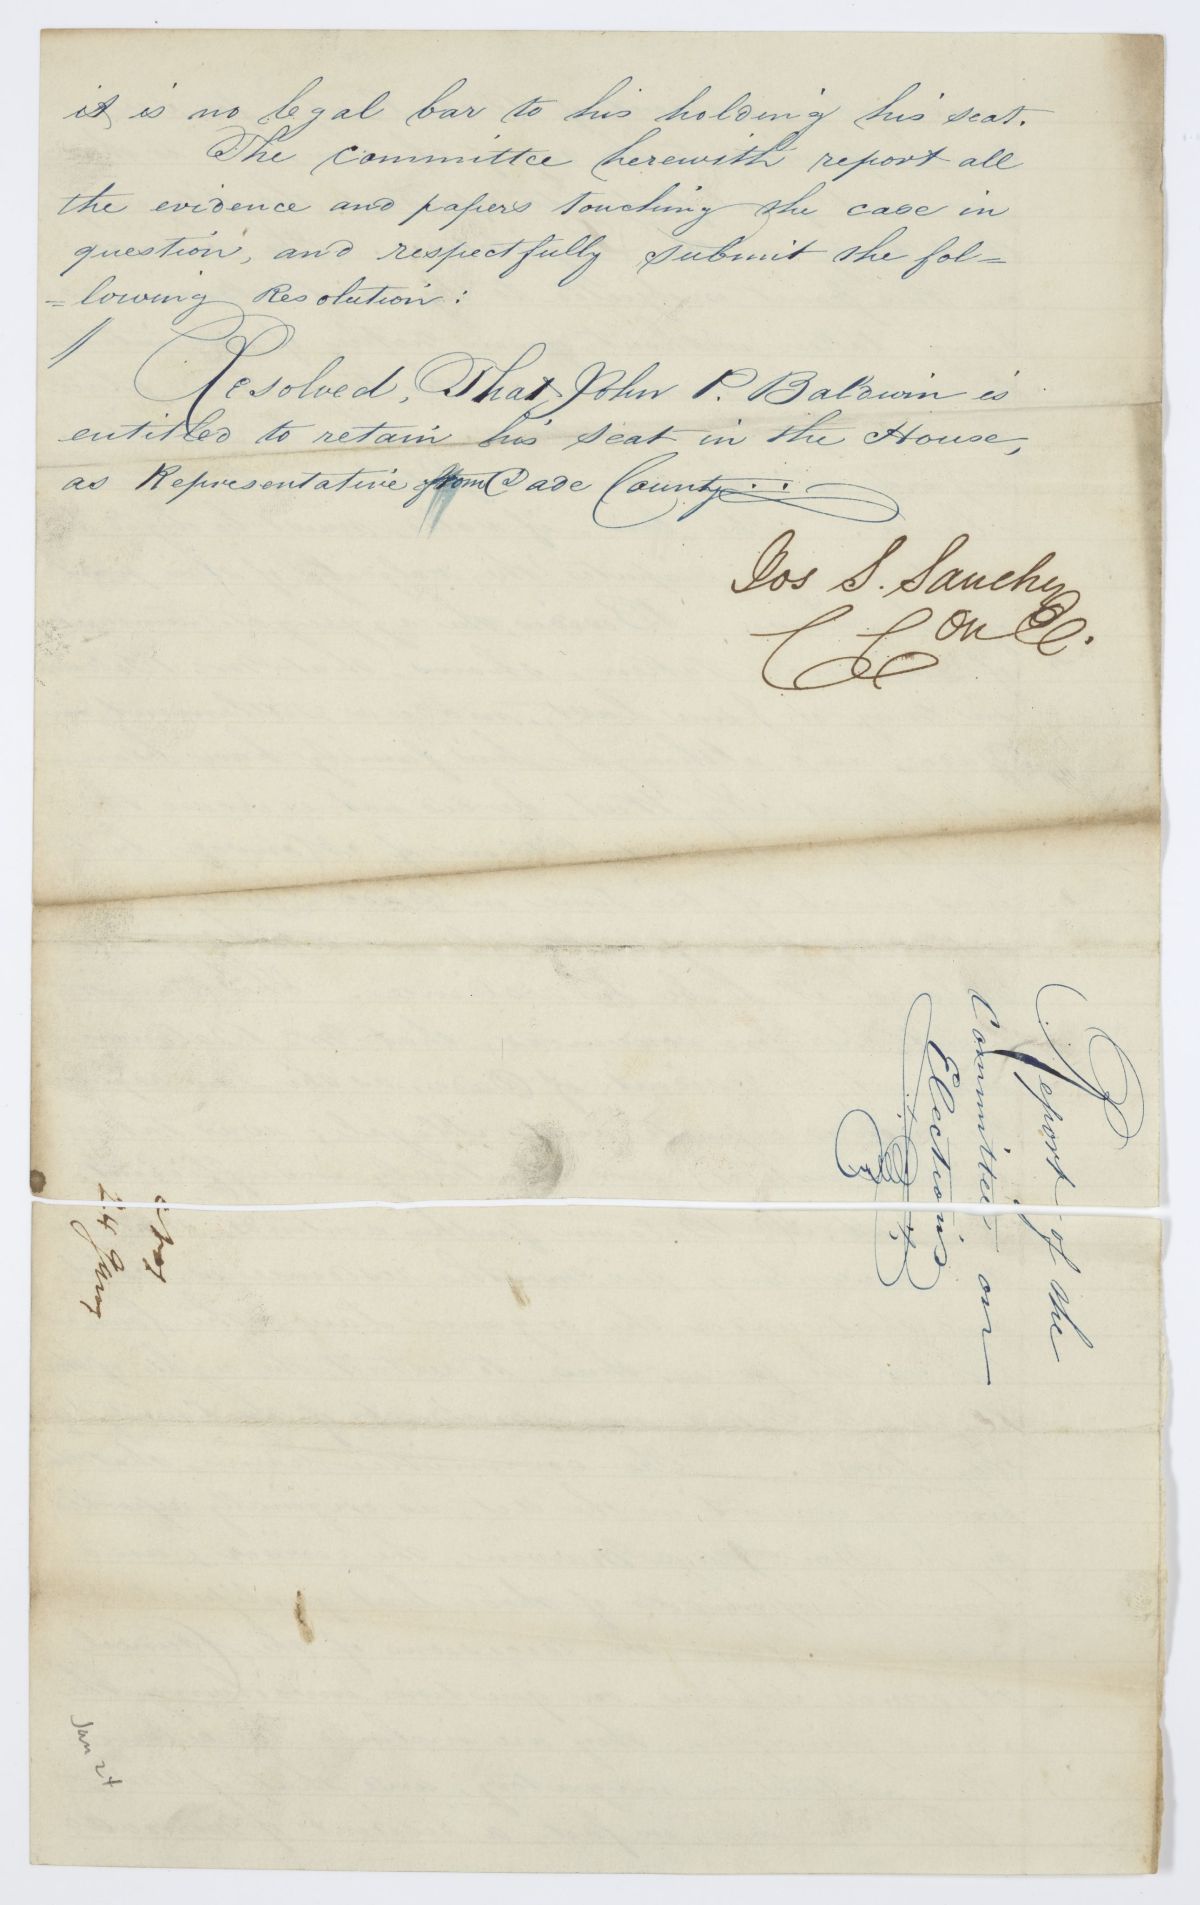 it is no legal bar to his holding his seat.
The Committee herewith report all
the evidence and papers touching the case in
question, and respectfully submit the fol=
=lowing Resolution:
Resolved, That John P. Baldwin is
entitled to retain his seat in the House,
as Representative from Dade County
Jos S. Sanchez
on E.
Report of the
Committee on
Elections
24 Jany
Jan 24